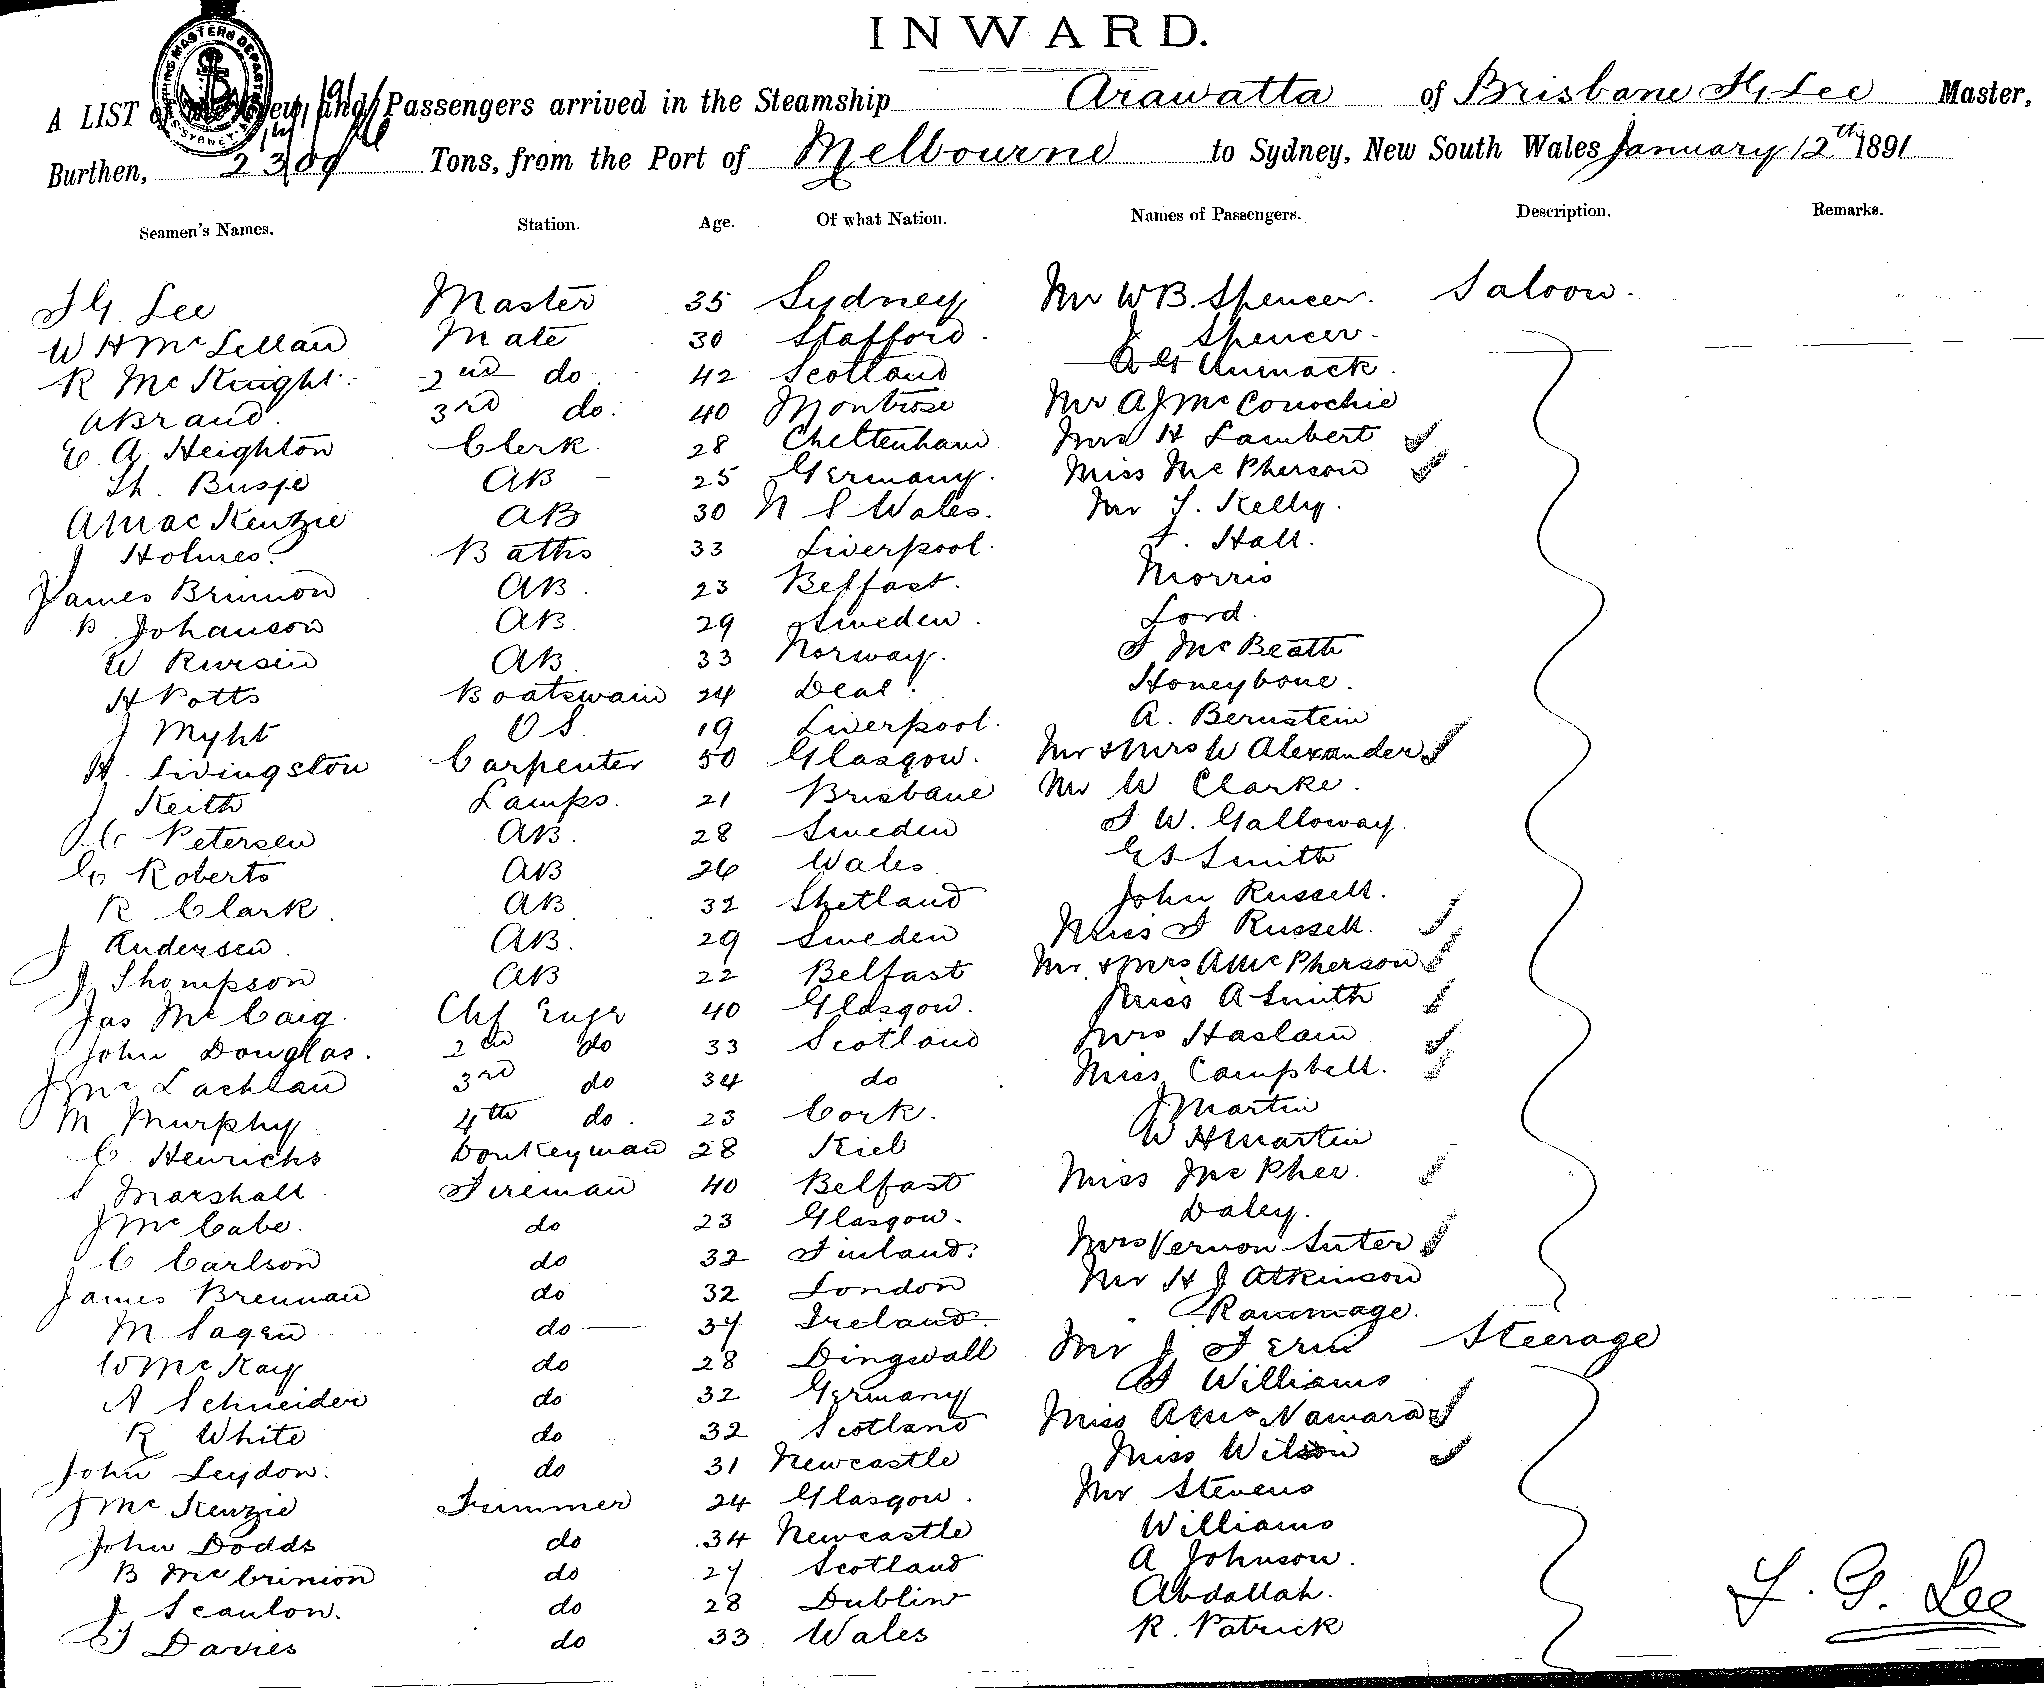 INWARD.
A LIST of the Crew and Passengers arrived in the Steamship Arawatta of Brisbane Lee Master,
Burthen, 2309 Tons, from the Port of Melbourne to Sydney, New South Wales January 12th 1891
Seamen's Names. Station. Age. Of what Nation. Names of Passengers. Description. Remarks.
Lee Master 35 Sydney Mr W B. Spencer. Saloon.
W H McLellan Mate 30 Stafford. J Spencer.
R McKnight. 2nd do 42 Scotland
A Brand. 3rd do. 40 Montrose Mr A J McConochie
E. A. Heighton Clerk 28 Cheltenham Mrs H Lambert
Busje AB 25 Germany. Miss McPherson
A MacKenzie AB 30 N S Wales. Mr T. Kelly.
J Holmes. Baths 33 Liverpool. Hall.
James AB. 23 Belfast. Morris
B Johanson AB. 29 Sweden. Lord.
W AB. 33 Norway. McBeath
H Potts Boatswain 24 Deal. Honeybone.
J Myht O S. 19 Liverpool. A. Bernstein
H. Livingston Carpenter 50 Glasgow. Mr & Mrs W Alexander
J Keith Lamps. 21 Brisbane Mr W Clarke.
C Petersen AB. 28 Sweden W. Galloway.
C Roberts AB 26 Wales Smith
R Clark. AB 32 Shetland John Russell.
J Andersen. AB. 29 Sweden Miss Russell.
J Thompson AB 22 Belfast Mr. & Mrs A McPherson
Jas McCaig. Chf Engr 40 Glasgow. Miss A Smith
John Douglas. 2nd do 33 Scotland Mrs Haslam
J McLachlan 3rd do 34 do Miss Campbell.
M Murphy. 4th do. 23 Cork. J Martin
C Henrichs Donkeyman 28 Kiel W H Martin
Marshall Fireman 40 Belfast Miss McPhee.
J McCabe. do 23 Glasgow. Daley.
C Carlson do 32 Finland. Mrs Vernon Suter
James Brennan do 32 London Mr H J Atkinson
M Sagen do 34 Ireland. Rammage.
W McKay do 28 Dingwall Mr J Steerage
A Schneider do 32 Germany Williams
R White do 32 Scotland Miss A McNamara
John Leydon. do 31 Newcastle Miss Wilson
J McKenzie Trimmer 24 Glasgow. Mr Stevens
John Dodds do 34 Newcastle Williams
B McCrinion do 27 Scotland A Johnson.
J Scanlon. do 28 Dublin Abdallah.
Davies do 33 Wales R. Patrick
G. Lee